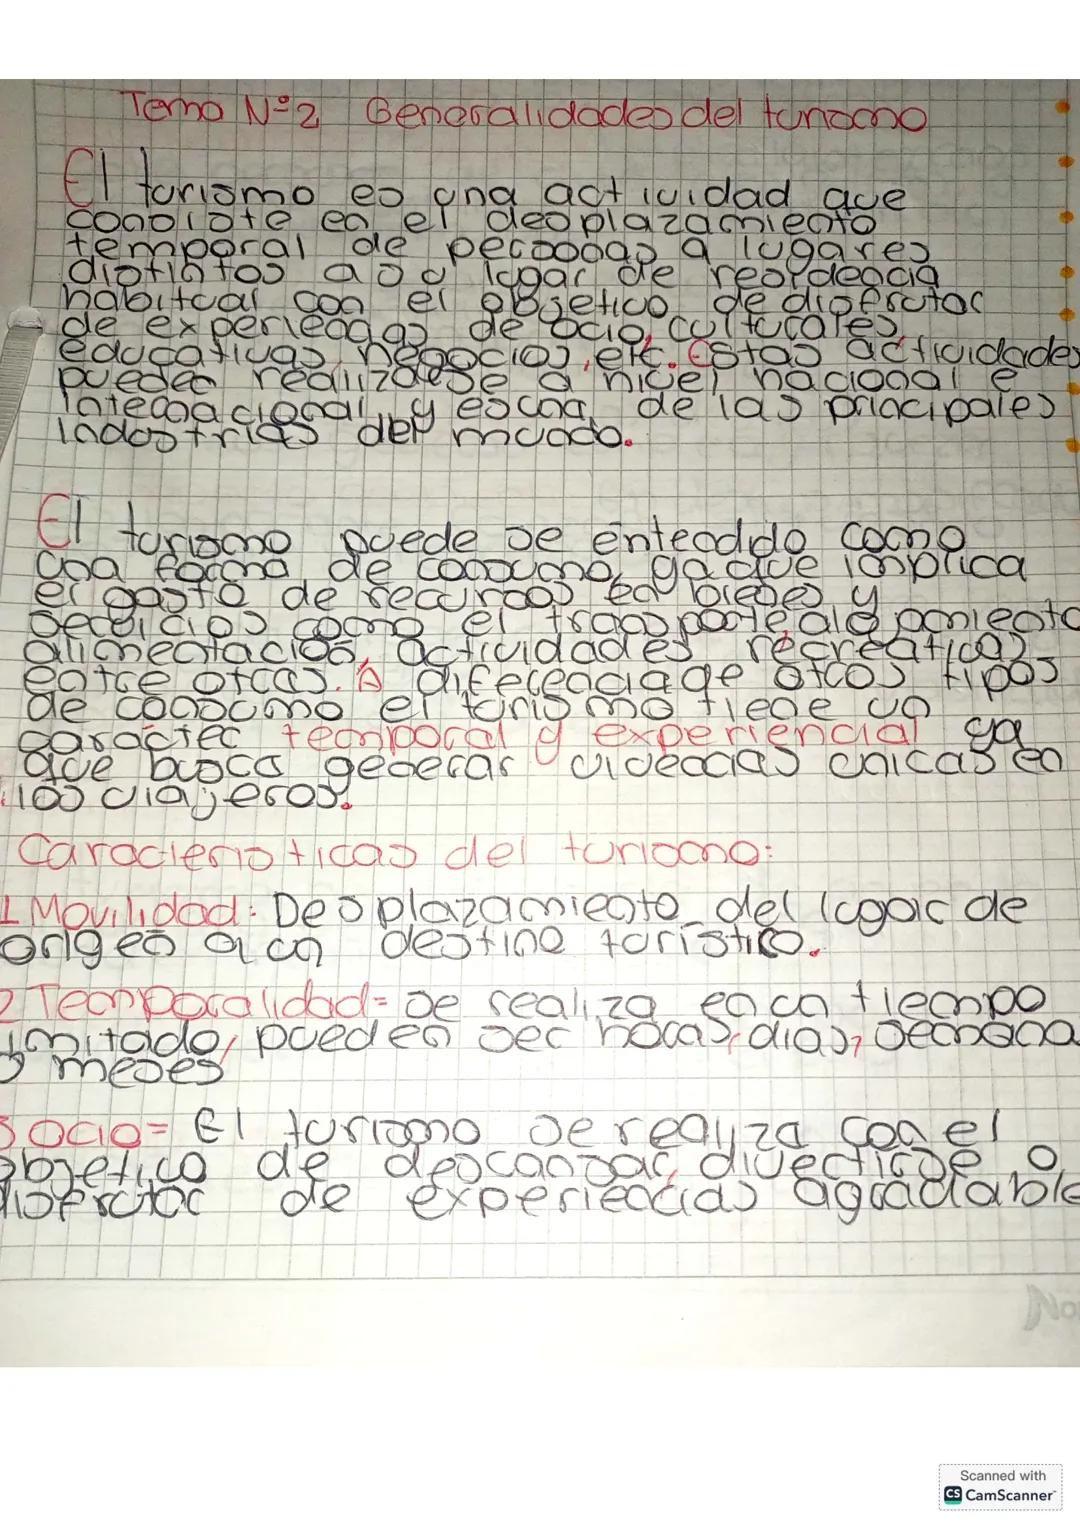 Tema Nº2 Generalidades del turismo
El turismo es una actividad que
consiste en el desplazamiento
temporal de personas a lugares
distintos a su lugar de residencia
habitual con el objetivo de disfrutar
de experiencias de ocio, culturales,
educativas, negocios, etc. Estas actividades
pueden realizarse a nivel nacional e
internacional, y es una de las principales
industrias del mundo.
El turismo puede se entedido como
una forma de consumo, ya que implica
el gasto de recursos en bienes y
servicios como el transporte, alojamiento
alimentación, actividades recreativas
entre otras. A diferencia de otros tipos
de consumo el turismo tiene un
carácter temporal y experiencial ya
que busca generar vivencias unicas en
los viajeros.
Caracteristicas del turismo:
1 Movilidad: Desplazamiento del lugar de
origen a un destino turistico.
2 Temporalidad= se realiza en un tiempo
limitado, pueden ser horas, dias, semana
s meses
3 Ocio= El turismo se realiza con el
objetivo de descansar, divertirse o
disfrutar de experiencias agradable
No
Scanned with
CS CamScanner